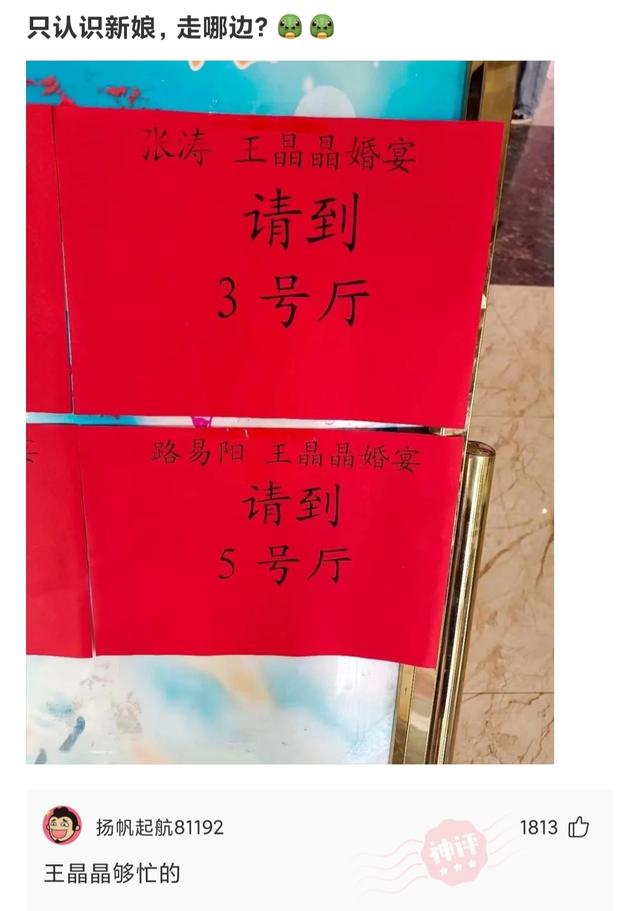 只认识新娘，走哪边？
张涛 王晶晶婚宴
请到
3 号厅
路易阳 王晶晶婚宴
请到
5 号厅
扬帆起航81192
1813
王晶晶够忙的
神评